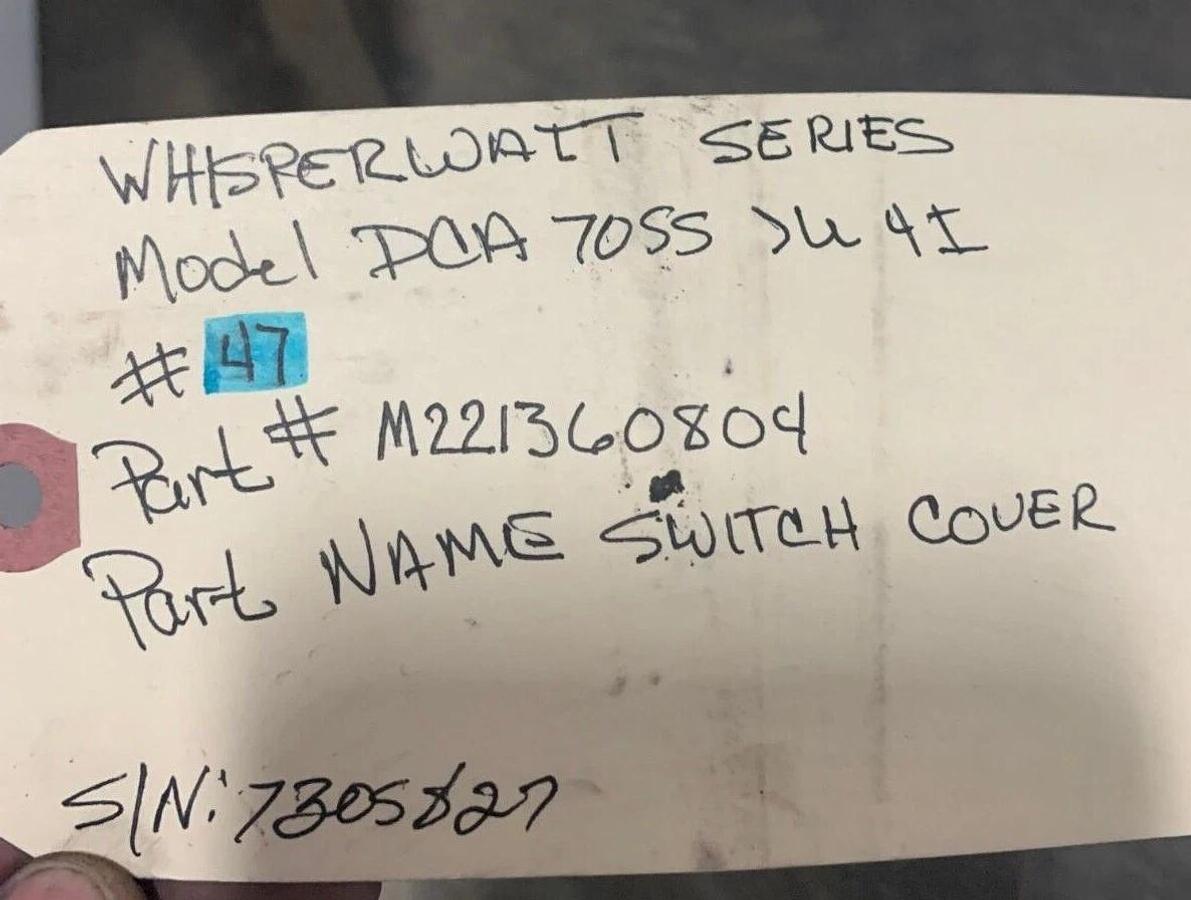 WHISPERWATT SERIES
Model DCA 70SS JU 4I
# 47
Part # M221360804
Part NAME SWITCH COVER
S/N: 7305827